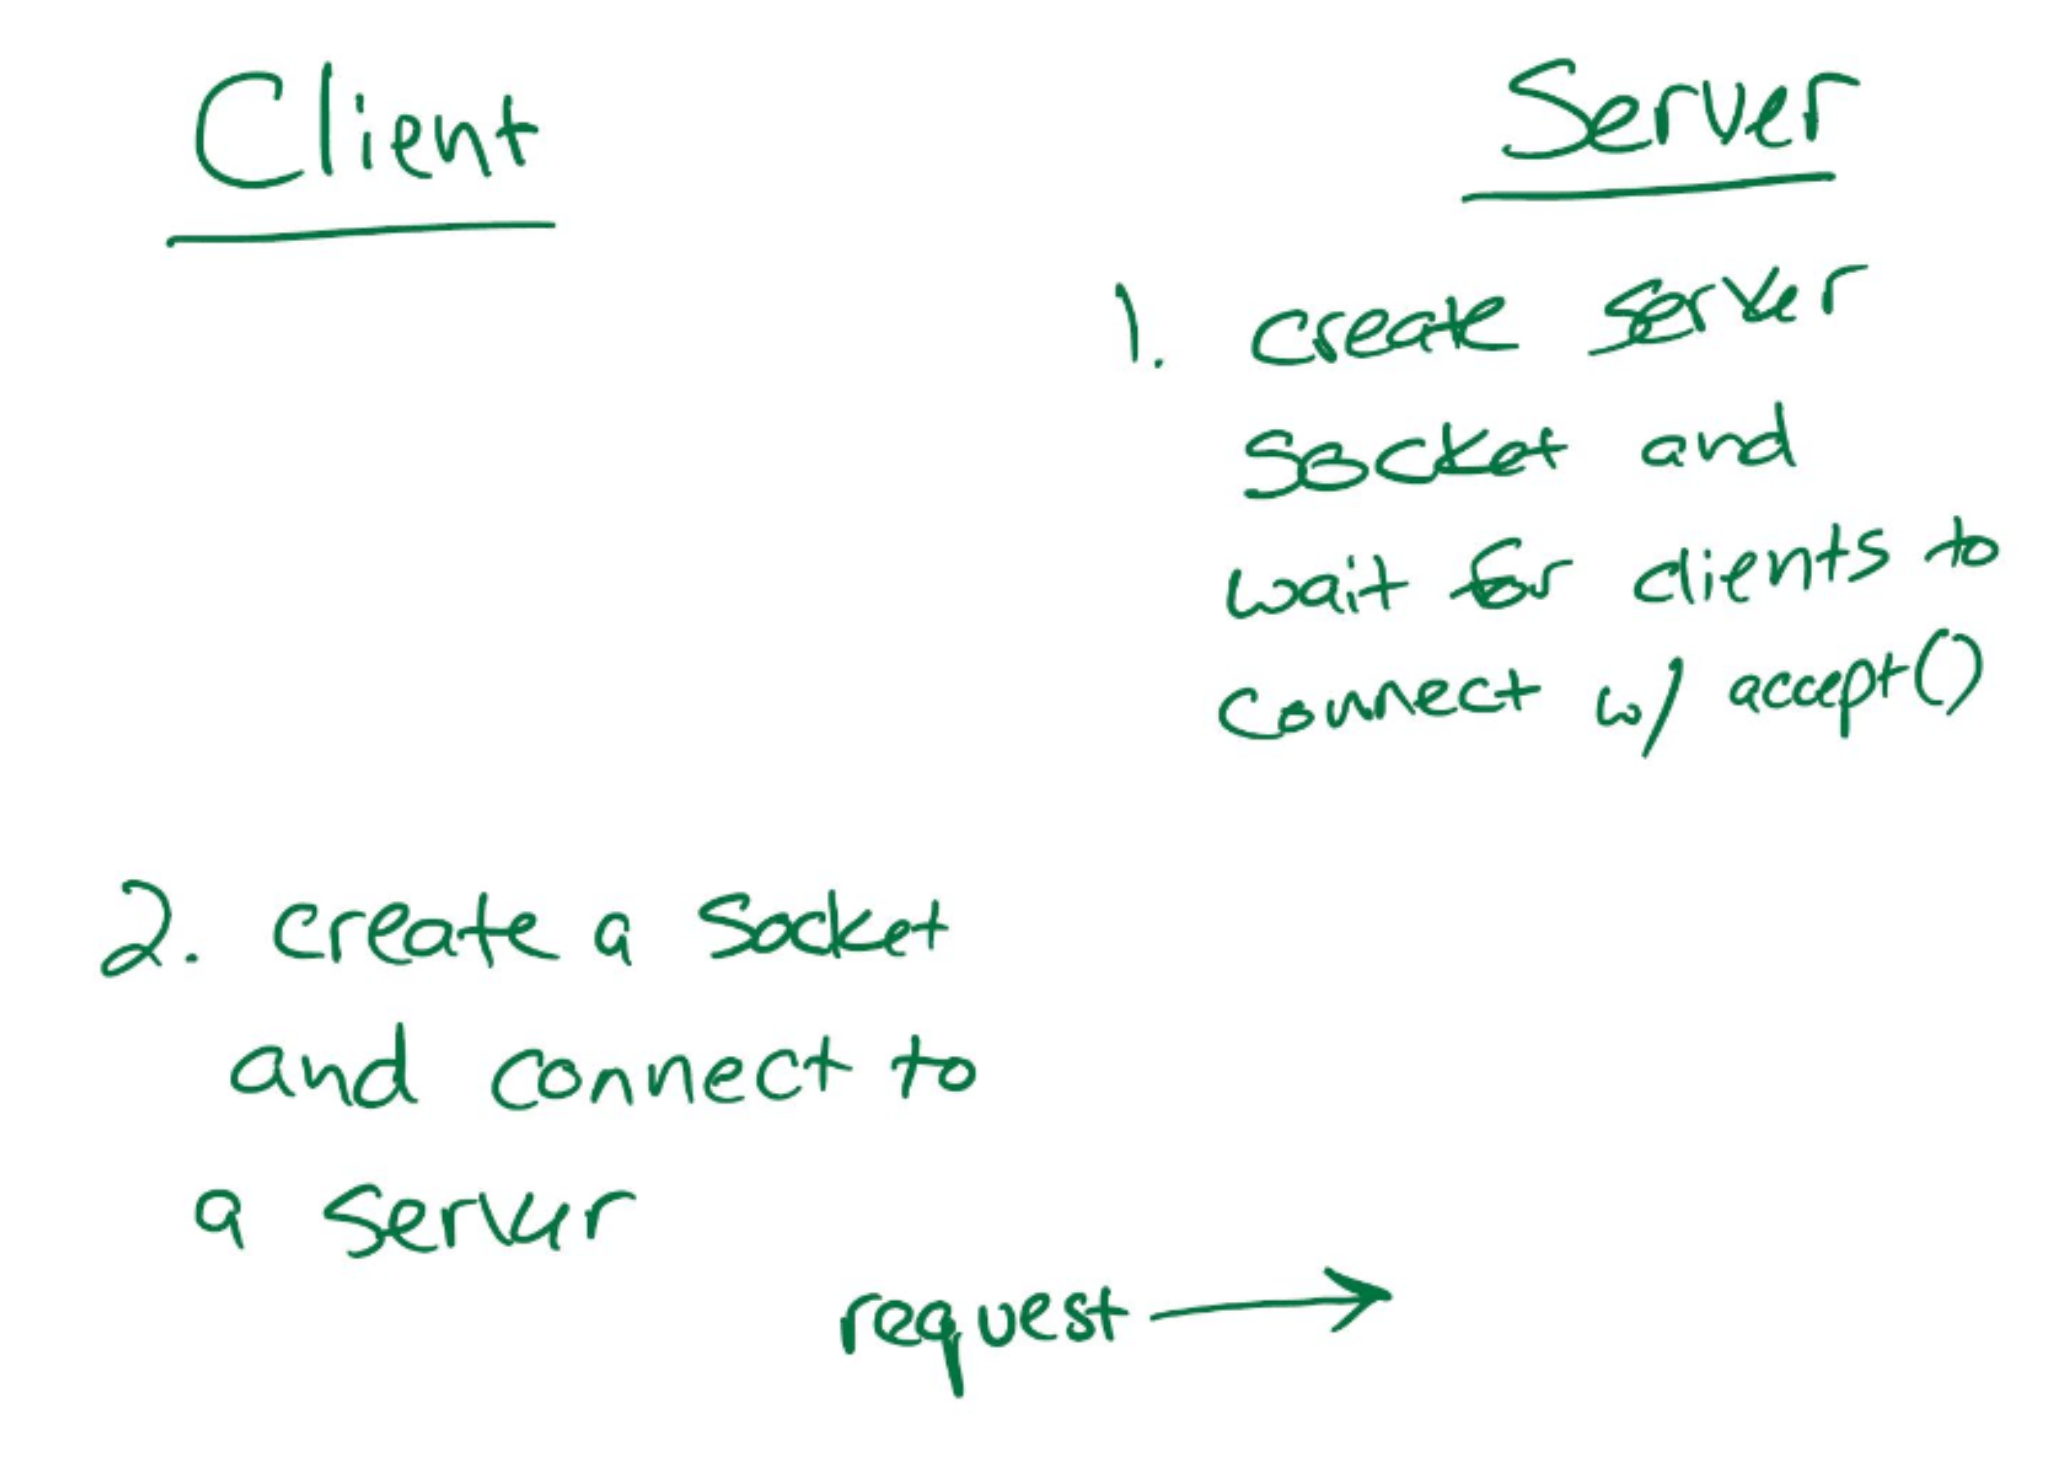 Client
Server
1. create server
socket and
wait for clients to
connect w/ accept()
2. create a socket
and connect to
a server
request